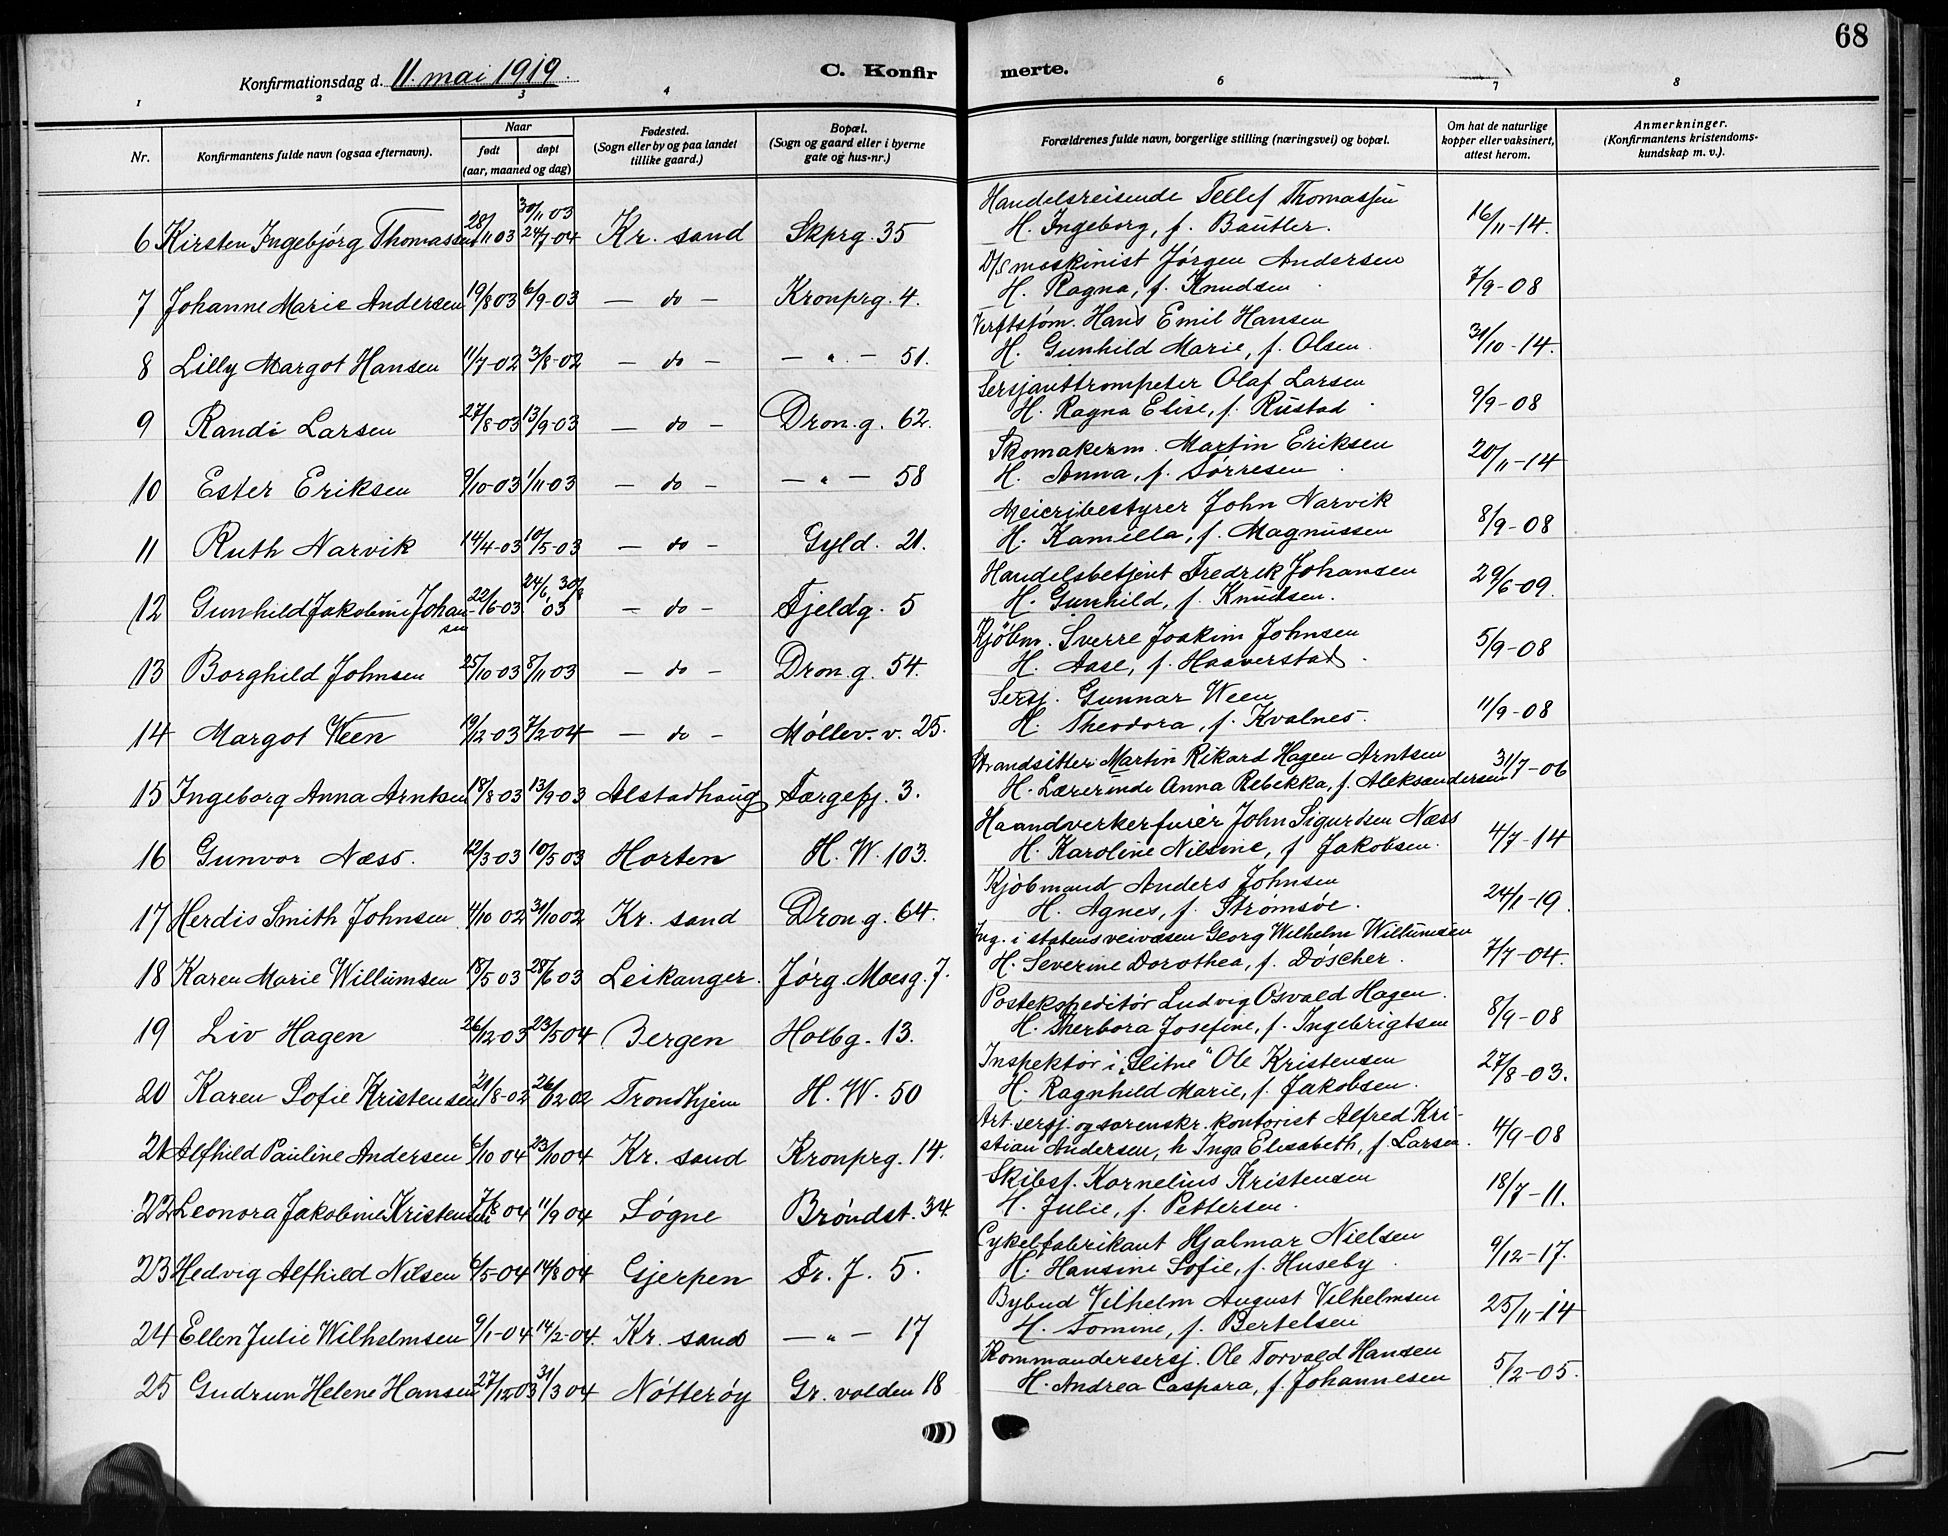 68
Konfirmationsdag d. 11. mai 1919.
C. Konfirmerte.
1 2 3 4 5 6 7 8
Nr. Konfirmantens fulde navn (ogsaa efternavn). Naar født døpt (aar, maaned og dag) Fødested. (Sogn eller by og paa landet tillike gaard.) Bopæl. (Sogn og gaard eller i byerne gate og hus-nr.) Forældrenes fulde navn, borgerlige stilling (næringsvei) og bopæl. Om hat de naturlige kopper eller vaksinert, attest herom. Anmerkninger. (Konfirmantens kristendoms-kundskap m. v.).
Handelsreisende Tellef Thomassen
6 Kirsten Ingebjørg Thomassen 28/11 03 30/11 03 24/7 04 Kr. sand Skprg. 35 H. Ingeborg, f. Bautler. 16/11-14.
D/S maskinist Jørgen Andersen
7 Johanne Marie Andersen 19/8 03 6/9-03 — do — Kronprg. 4. H. Ragna, f. Knudsen 7/9-08
Verftstøm. Hans Emil Hansen
8 Lilly Margot Hansen 11/7-02 3/8-02 — do — — " — 51. H. Gunhild Marie, f. Olsen. 31/10-14.
Sersjanttrompeter Olaf Larsen
9 Randi Larsen 27/8-03 13/9-03 — do — Dron.g. 62. H. Ragna Elise, f. Rustad 9/9-08
Skomakerm. Martin Eriksen
10 Ester Eriksen 9/10-03 1/11-03 — do — — " — 58 H. Anna, f. Sørresen 20/11-14
Meieribestyrer John Narvik
11 Ruth Narvik 14/4-03 10/5-03 — do — Gyld. 21. H. Kamilla, f. Magnussen 8/9-08
Handelsbetjent Fredrik Johansen
12 Gunhild Jakobine Johansen 22/6-03 24/6, 30/8 03 — do — Fjeldg. 5 H. Gunhild, f. Knudsen. 29/6-09.
Kjøbm. Sverre Joakim Johnsen
13 Borghild Johnsen 25/10 03 8/11 03 — do — Dron.g. 54. H. Aase, f. Haaverstad. 5/9-08
Sersj. Gunnar Ween
14 Margot Ween 19/12-03 7/2-04 — do — Møllev. v. 25. H. Theodora, f. Kvalnes. 11/9-08
Strandsitter Martin Rikard Hagen Arntsen
15 Ingeborg Anna Arntsen 18/8 03 13/9-03 Alstadhaug Færgefj. 3. H. Lærerinde Anna Rebekka, f. Aleksandersen 31/7-06
Haandverkerfurér John Sigurdsen Næss
16 Gunvor Næss. 12/3-03 10/5 03 Horten H. W. 103. H. Karoline Nilsine, f. Jakobsen. 4/7-14
Kjøbmand Anders Johnsen
17 Herdis Smith Johnsen 4/10 02 31/10 02 Kr. sand Dron.g. 64. H. Agnes, f. Strømsøe. 24/1-19.
Ing. i statens veivæsen Georg Wilhelm Willumsen
18 Karen Marie Willumsen 18/5 03 28/6 03 Leikanger. Jørg. Moesg. 7. H. Severine Dorothea, f. Døscher. 7/7-04.
Postekspeditør Ludvig Osvald Hagen.
19 Liv Hagen 26/12-03 23/5 04 Bergen Holbg. 13. H. Therbora Josefine, f. Ingebrigtsen 8/9-08
Inspektør i "Glitne" Ole Kristensen
20 Karen Sofie Kristensen 21/8-02 26/12-02 Trondhjem H. W. 50 H. Ragnhild Marie, f. Jakobsen. 27/8-03.
Art. sersj. og sorenskr. kontorist Alfred Kri-
21 Alfhild Pauline Andersen 6/10 04 23/10 04 Kr. sand Kronprg. 14. stian Andersen, h. Inga Elisabeth, f. Larsen. 4/9-08
Skibsf. Kornelius Kristensen
22 Leonora Jakobine Kristensen 7/8 04 11/9 04 Søgne Brøndst. 34. H. Julie, f. Pettersen. 18/7-11.
Cykelfabrikant Hjalmar Nielsen
23 Hedvig Alfhild Nilsen 6/5-04 14/8 04 Gjerpen Fr. J. 5. H. Hansine Sofie, f. Huseby. 9/12-17.
Bybud Vilhelm August Vilhelmsen
24 Ellen Julie Wilhelmsen 9/1-04 14/2-04. Kr. sand — " — 17 H. Tomine, f. Bertelsen 25/11-14
Kommandersersj. Ole Torvald Hansen
25 Gudrun Helene Hansen 27/12 03 31/3 04 Nøtterøy Gr. volden 18 H. Andrea Caspara, f. Johannesen 5/2-05.